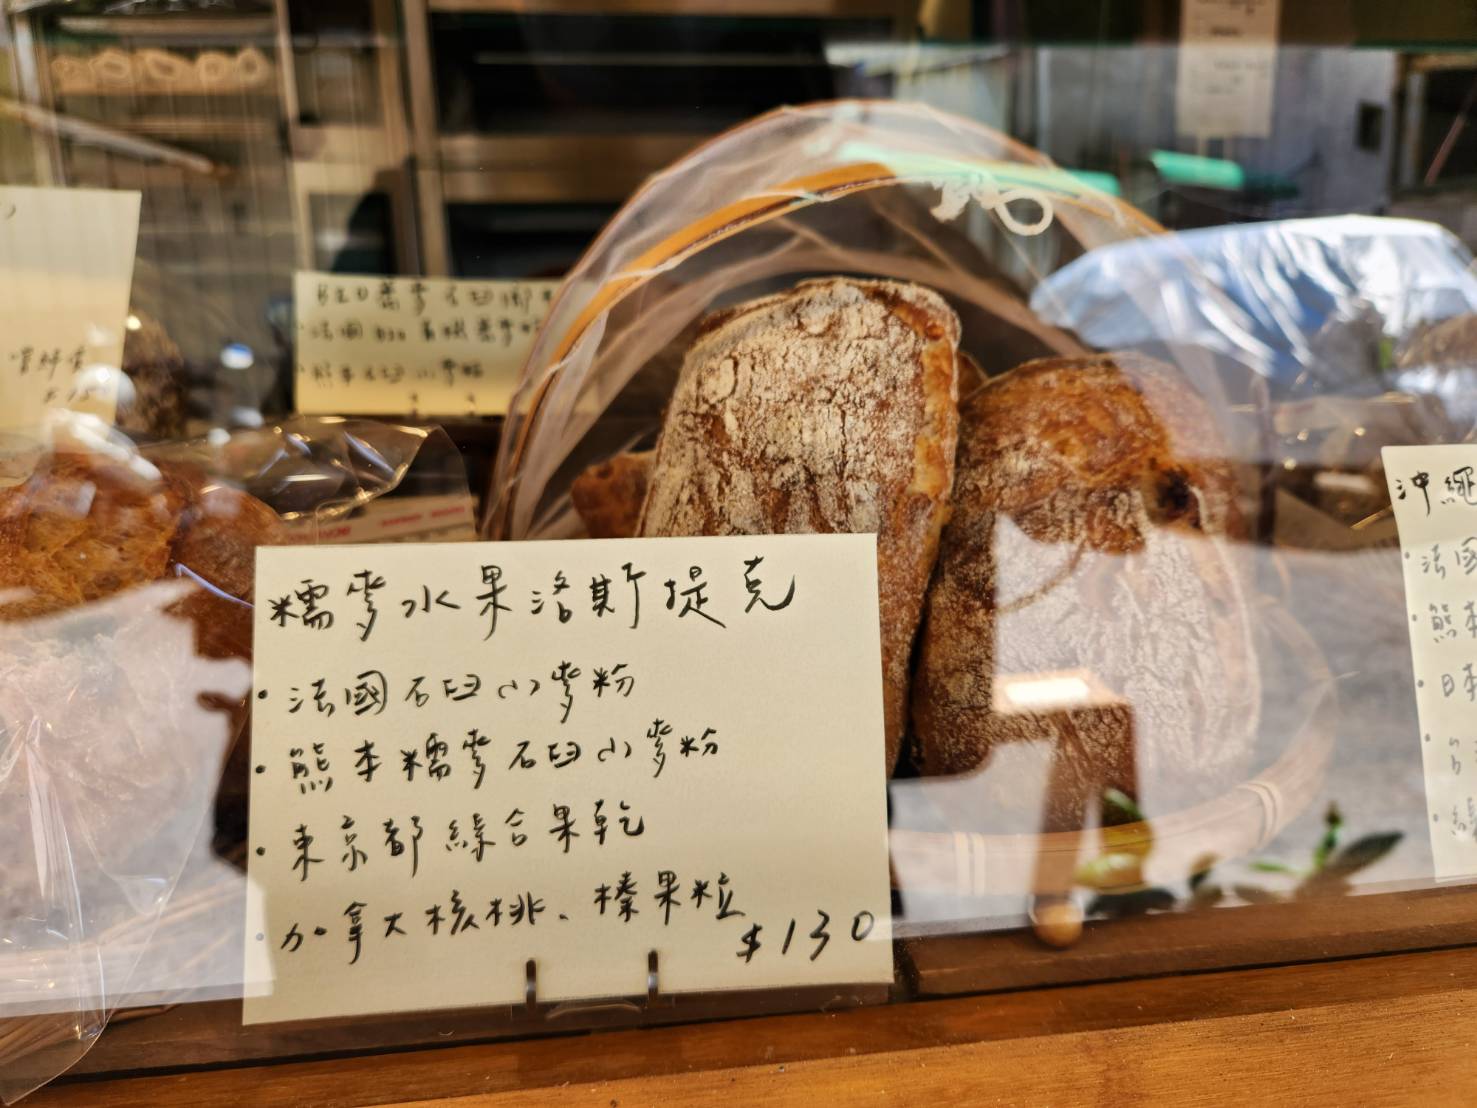 糯麥水果洛斯提克
・法國石臼小麥粉
・熊本糯麥石臼小麥粉
・東京都綜合果乾
・加拿大核桃、榛果粒
$130
・法國
・熊本石臼小麥粉
沖繩
・法國
・熊本
・日本